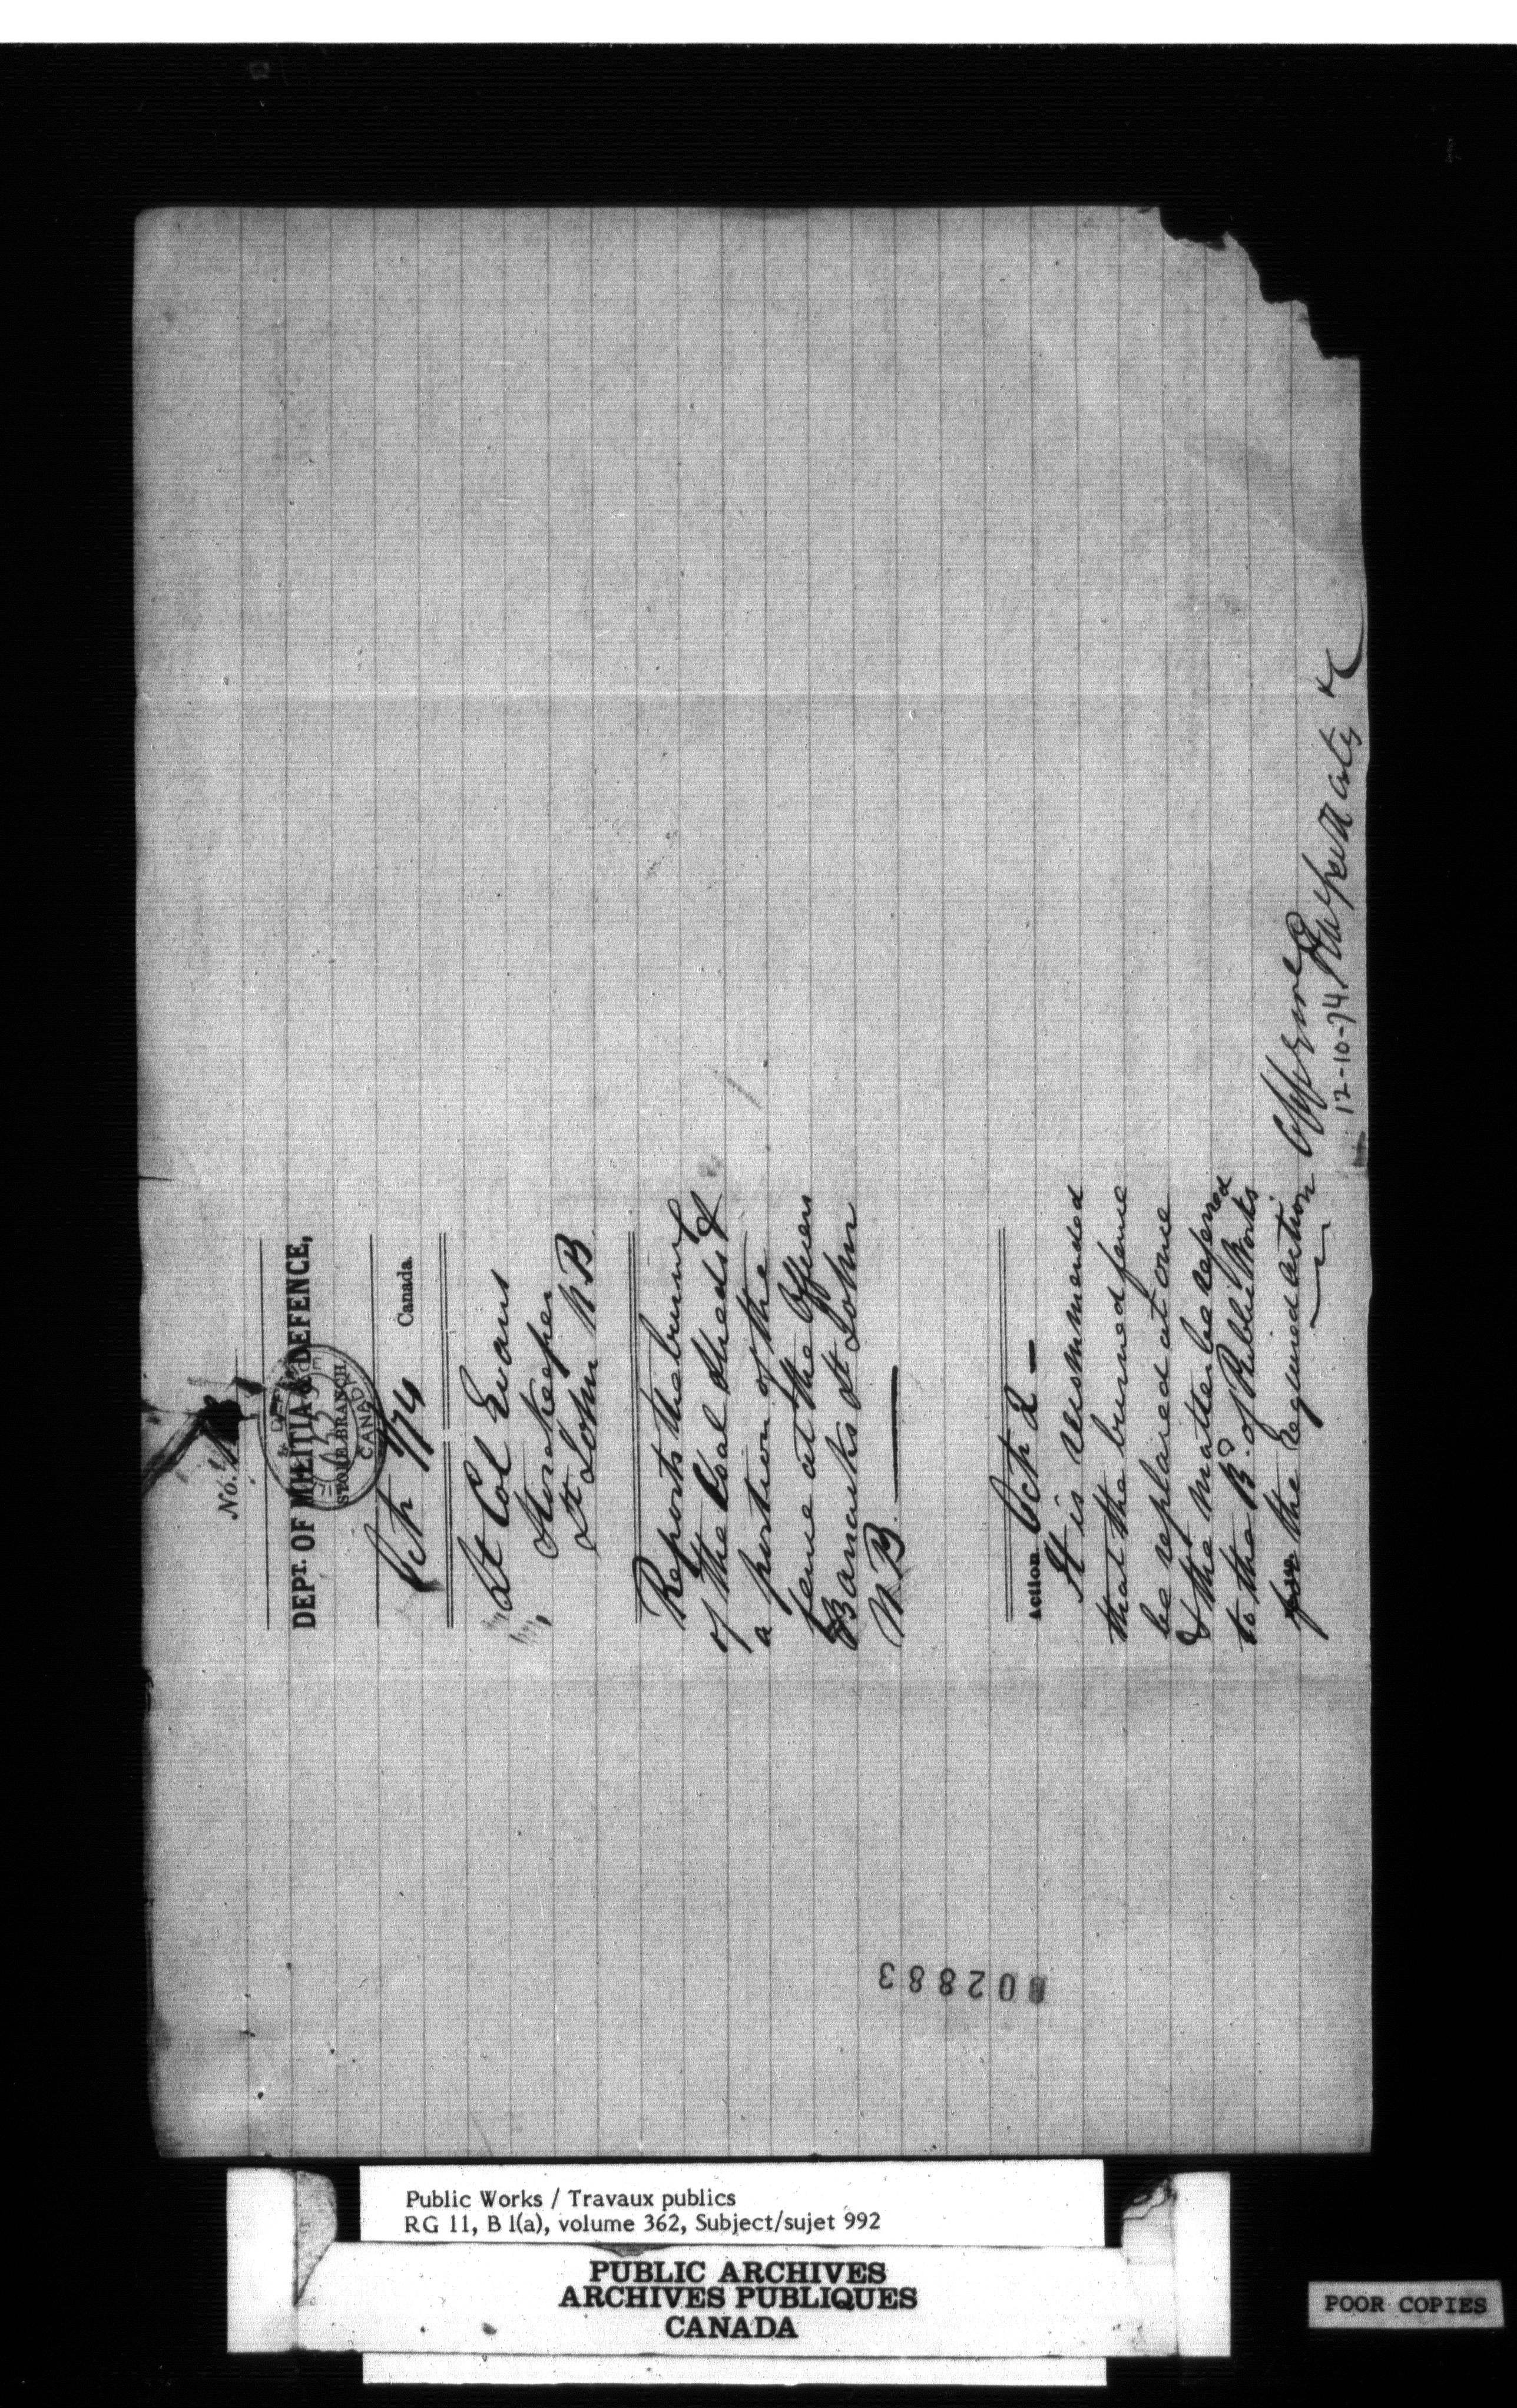 No.
DEPT. OF MILITIA & DEFENCE,
STORE BRANCH
CANADA
Canada.
Lt Col Evans
Storekeeper
St John N.B
Reports the burning
of the Coal Sheds &
a portion of the
fence at the Officers
Barracks St John
N.B.
Action Oct 2 -
It is recommended
that the burned fence
be replaced at once
& the matter be referred
to the B. of Public Works
for the required action
Approved
12-10-74
02883
Public Works / Travaux publics
RG 11, B 1(a), volume 362, Subject/sujet 992
PUBLIC ARCHIVES
ARCHIVES PUBLIQUES
CANADA
POOR COPIES